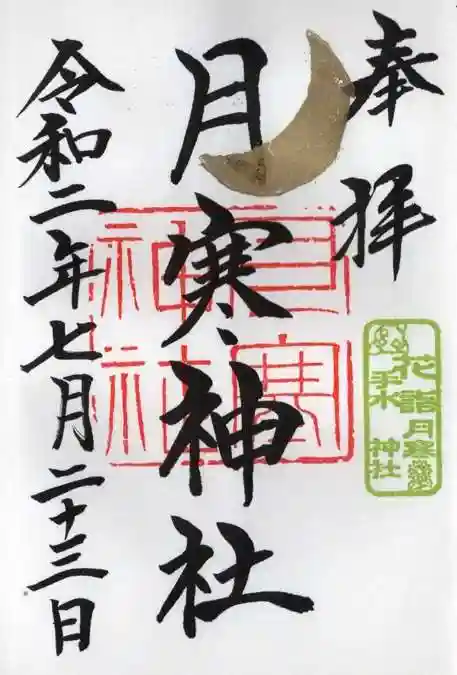 奉拝
月寒神社
令和二年七月二十三日
月寒
神社
花詣
手水
月寒
神社